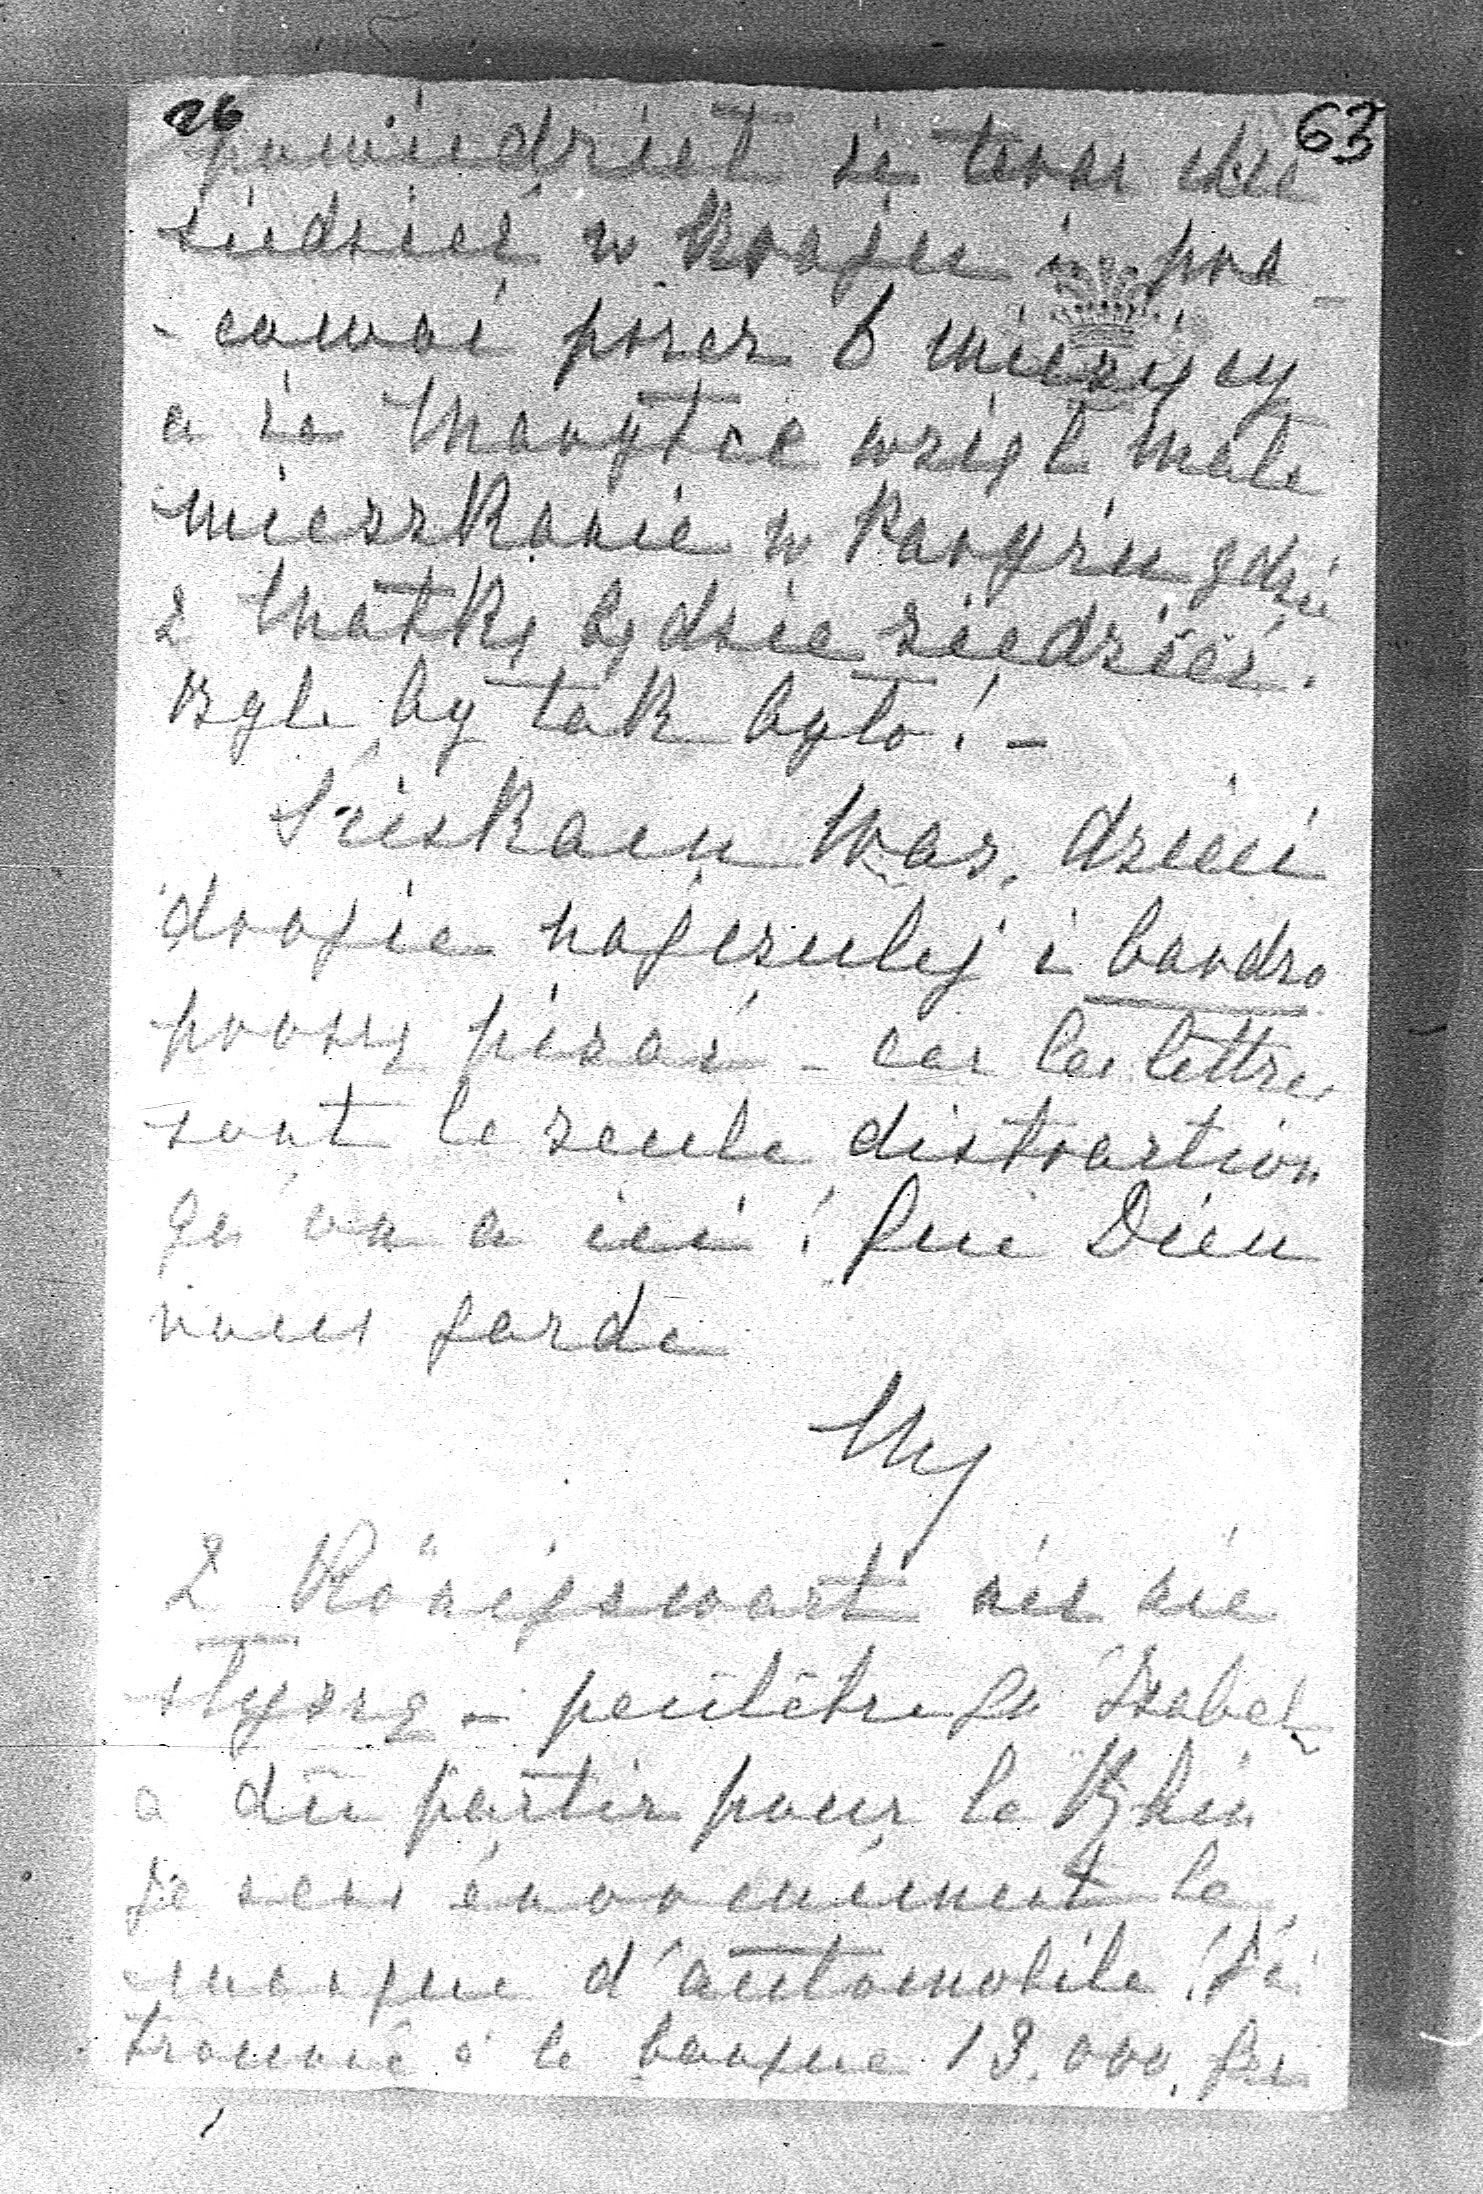 26 63
powiedział że teraz chce
siedzieć w Kraju i pra
- cować przez 6 miesięcy
a że Marytce wziął małe
mieszkanie w Paryżu gdzie
z Matką będzie siedzieć.
Żyle by tak było! -
Ściskam Was, dzieci
drogie najczulej i bardzo
proszę pisać - car les lettres
sont la seule distraction
qu'on a ici! Que Dieu
vous garde
My
Z Königswart nic nie
słyszę - peutêtre qu'Isabel
a dû partir pour le Rhin
Je sens énormément le
manque d'automobile! J'ai
trouvé à la banque 13.000 frs